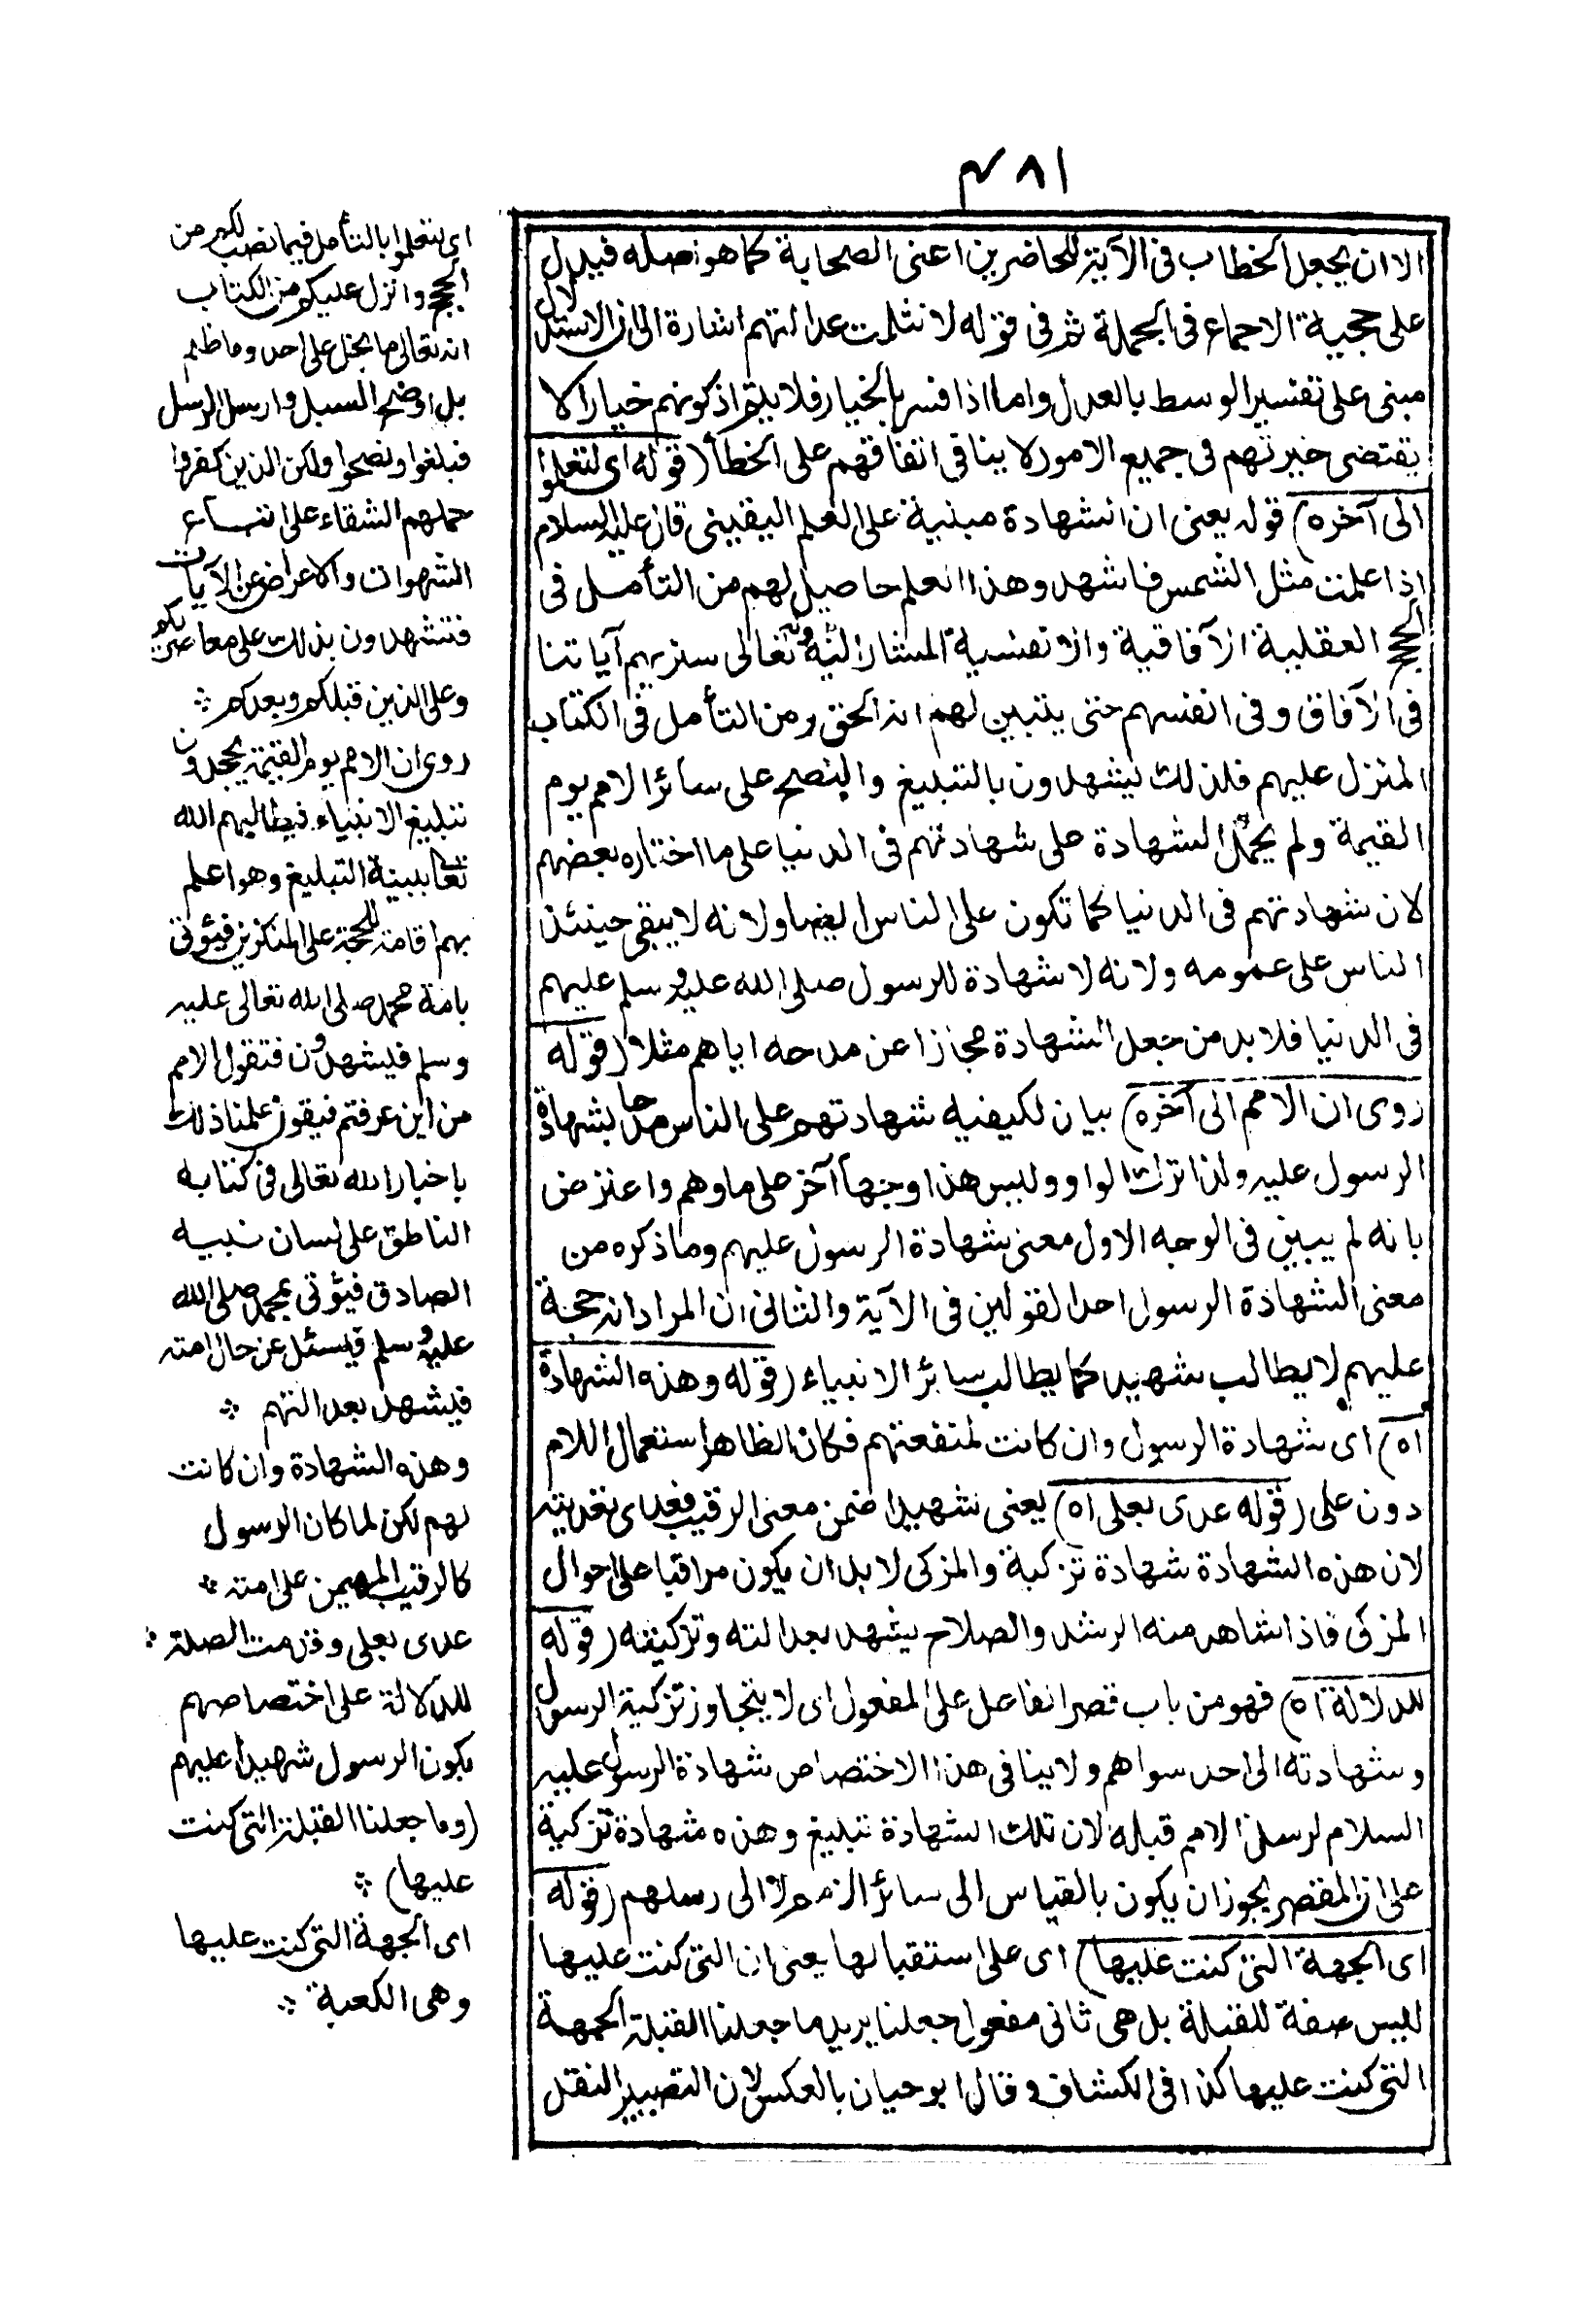 ٤٨١
الا ان يجعل الخطاب فى الآية للحاضرين اعنى الصحابة كما هو اصله فيدل
على حجية الاجماع فى الجملة ثم فى قوله لانثلمت عدالتهم اشارة الى ان الاستدلال
مبنى على تفسير الوسط بالعدل واما اذا فسر بالخيار فلا يتم اذ كونهم خيارا لا
يقتضى خيرتهم فى جميع الامور لا ينافى اتفاقهم على الخطأ (قوله اى لتعلموا
الى آخره) قوله يعنى ان الشهادة مبنية على العلم اليقينى قال عليه السلام
اذا علمت مثل الشمس فاشهد وهذا العلم حاصل لهم من التأمل فى
الحجج العقلية الآفاقية والانفسية المشار اليه بقوله تعالى سنريهم آياتنا
فى الآفاق وفى انفسهم حتى يتبين لهم انه الحق ومن التأمل فى الكتاب
المنزل عليهم فلذلك يشهدون بالتبليغ والنصح على سائر الامم يوم
القيمة ولم يحمل الشهادة على شهادتهم فى الدنيا على ما اختاره بعضهم
لان شهادتهم فى الدنيا كما تكون على الناس ايضا ولانه لا يبقى حينئذ
الناس على عمومه ولانه لا شهادة للرسول صلى الله عليه وسلم عليهم
فى الدنيا فلا بد من جعل الشهادة مجازا عن مدحه اياهم مثلا (قوله
روى ان الامم الى آخره) بيان لكيفية شهادتهم على الناس بشهادة
الرسول عليه ولذا ترك الواو وليس هذا وجها آخر على ما وهم واعترض
بانه لم يبين فى الوجه الاول معنى شهادة الرسول عليهم وما ذكره من
معنى الشهادة الرسول احد القولين فى الآية والثانى ان المراد انه حجة
عليهم لا يطالب بشهيد كما يطالب سائر الانبياء (قوله وهذه الشهادة
اه) اى شهادة الرسول وان كانت لمنفعتهم فكان الظاهر استعمال اللام
دون على (قوله عدى بعلى اه) يعنى شهيدا ضمن معنى الرقيب فعدى تعديته
لان هذه الشهادة شهادة تزكية والمزكى لا بد ان يكون مراقبا على احوال
المزكى فاذا شاهد منه الرشد والصلاح يشهد بعدالته وتزكيته (قوله
للدلالة اه) فهو من باب قصر الفاعل على المفعول اى لا يتجاوز تزكية الرسول
وشهادته الى احد سواهم ولا ينافى هذا الاختصاص شهادة الرسول عليه
السلام لرسل الامم قبله لان تلك الشهادة تبليغ وهذه شهادة تزكية
على ان القصر يجوز ان يكون بالقياس الى سائر الامم لا الى رسلهم (قوله
اى الجهة التى كنت عليها) اى على استقبالها يعنى ان التى كنت عليها
ليس صفة للقبلة بل هى ثانى مفعول جعلنا يريد ما جعلنا القبلة الجهة
التى كنت عليها كذا فى الكشاف وقال ابو حيان بالعكس لان التصيير النقل
اى لتعلموا بالتأمل فيما نصب لكم من
الحجج وانزل عليكم من الكتاب
انه تعالى ما بخل على احد وما ظلم
بل اوضح السبل وارسل الرسل
فبلغوا ونصحوا ولكن الذين كفروا
حملهم الشقاء على اتباع
الشهوات والاعراض عن الآيات
فتشهدون بذلك على معاصريكم
وعلى الذين قبلكم وبعدكم
روى ان الامم يوم القيمة يجحدون
تبليغ الانبياء فيطالبهم الله
تعالى ببينة التبليغ وهو اعلم
بهم اقامة للحجة على المنكرين فيؤتى
بامة محمد صلى الله تعالى عليه
وسلم فيشهدون فتقول الامم
من اين عرفتم فيقولون علمنا ذلك
باخبار الله تعالى فى كتابه
الناطق على لسان نبيه
الصادق فيؤتى بمحمد صلى الله
عليه وسلم فيسئل عن حال امته
فيشهد بعدالتهم
وهذه الشهادة وان كانت
لهم لكن لما كان الرسول
كالرقيب المهيمن على امته
عدى بعلى وقدمت الصلة
للدلالة على اختصاصهم
بكون الرسول شهيدا عليهم
(وما جعلنا القبلة التى كنت
عليها)
اى الجهة التى كنت عليها
وهى الكعبة